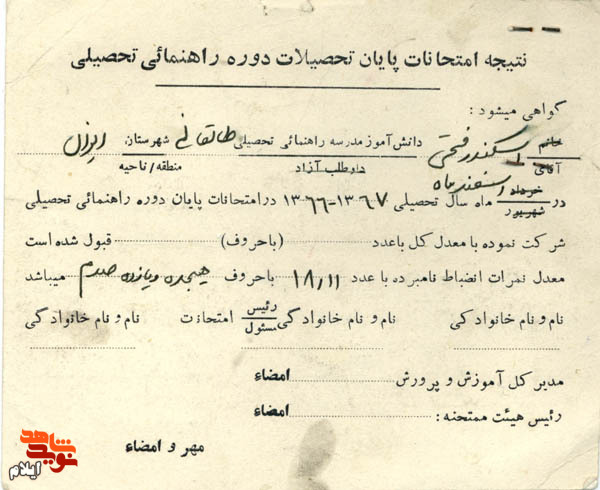 نتیجه امتحانات پایان تحصیلات دوره راهنمائی تحصیلی
گواهی میشود:
خانم
آقای اسکندر فتحی دانش‌آموز مدرسه راهنمائی تحصیلی طالقانی شهرستان
داوطلب آزاد منطقه/ناحیه
اسفندماه
در خرداد
شهریور ماه سال تحصیلی ۱۳۶۷-۱۳۶۶ در امتحانات پایان دوره راهنمائی تحصیلی
شرکت نموده با معدل کل باعدد (باحروف) قبول شده است
معدل نمرات انضباط نامبرده با عدد ۱۸٫۱۱ باحروف هیجده و یازده صدم میباشد
نام و نام خانوادگی نام و نام خانوادگی رئیس
مسئول امتحانات نام و نام خانوادگی
مدیر کل آموزش و پرورش امضاء
رئیس هیئت ممتحنه: امضاء
مهر و امضاء
نوید شاهد
ایلام